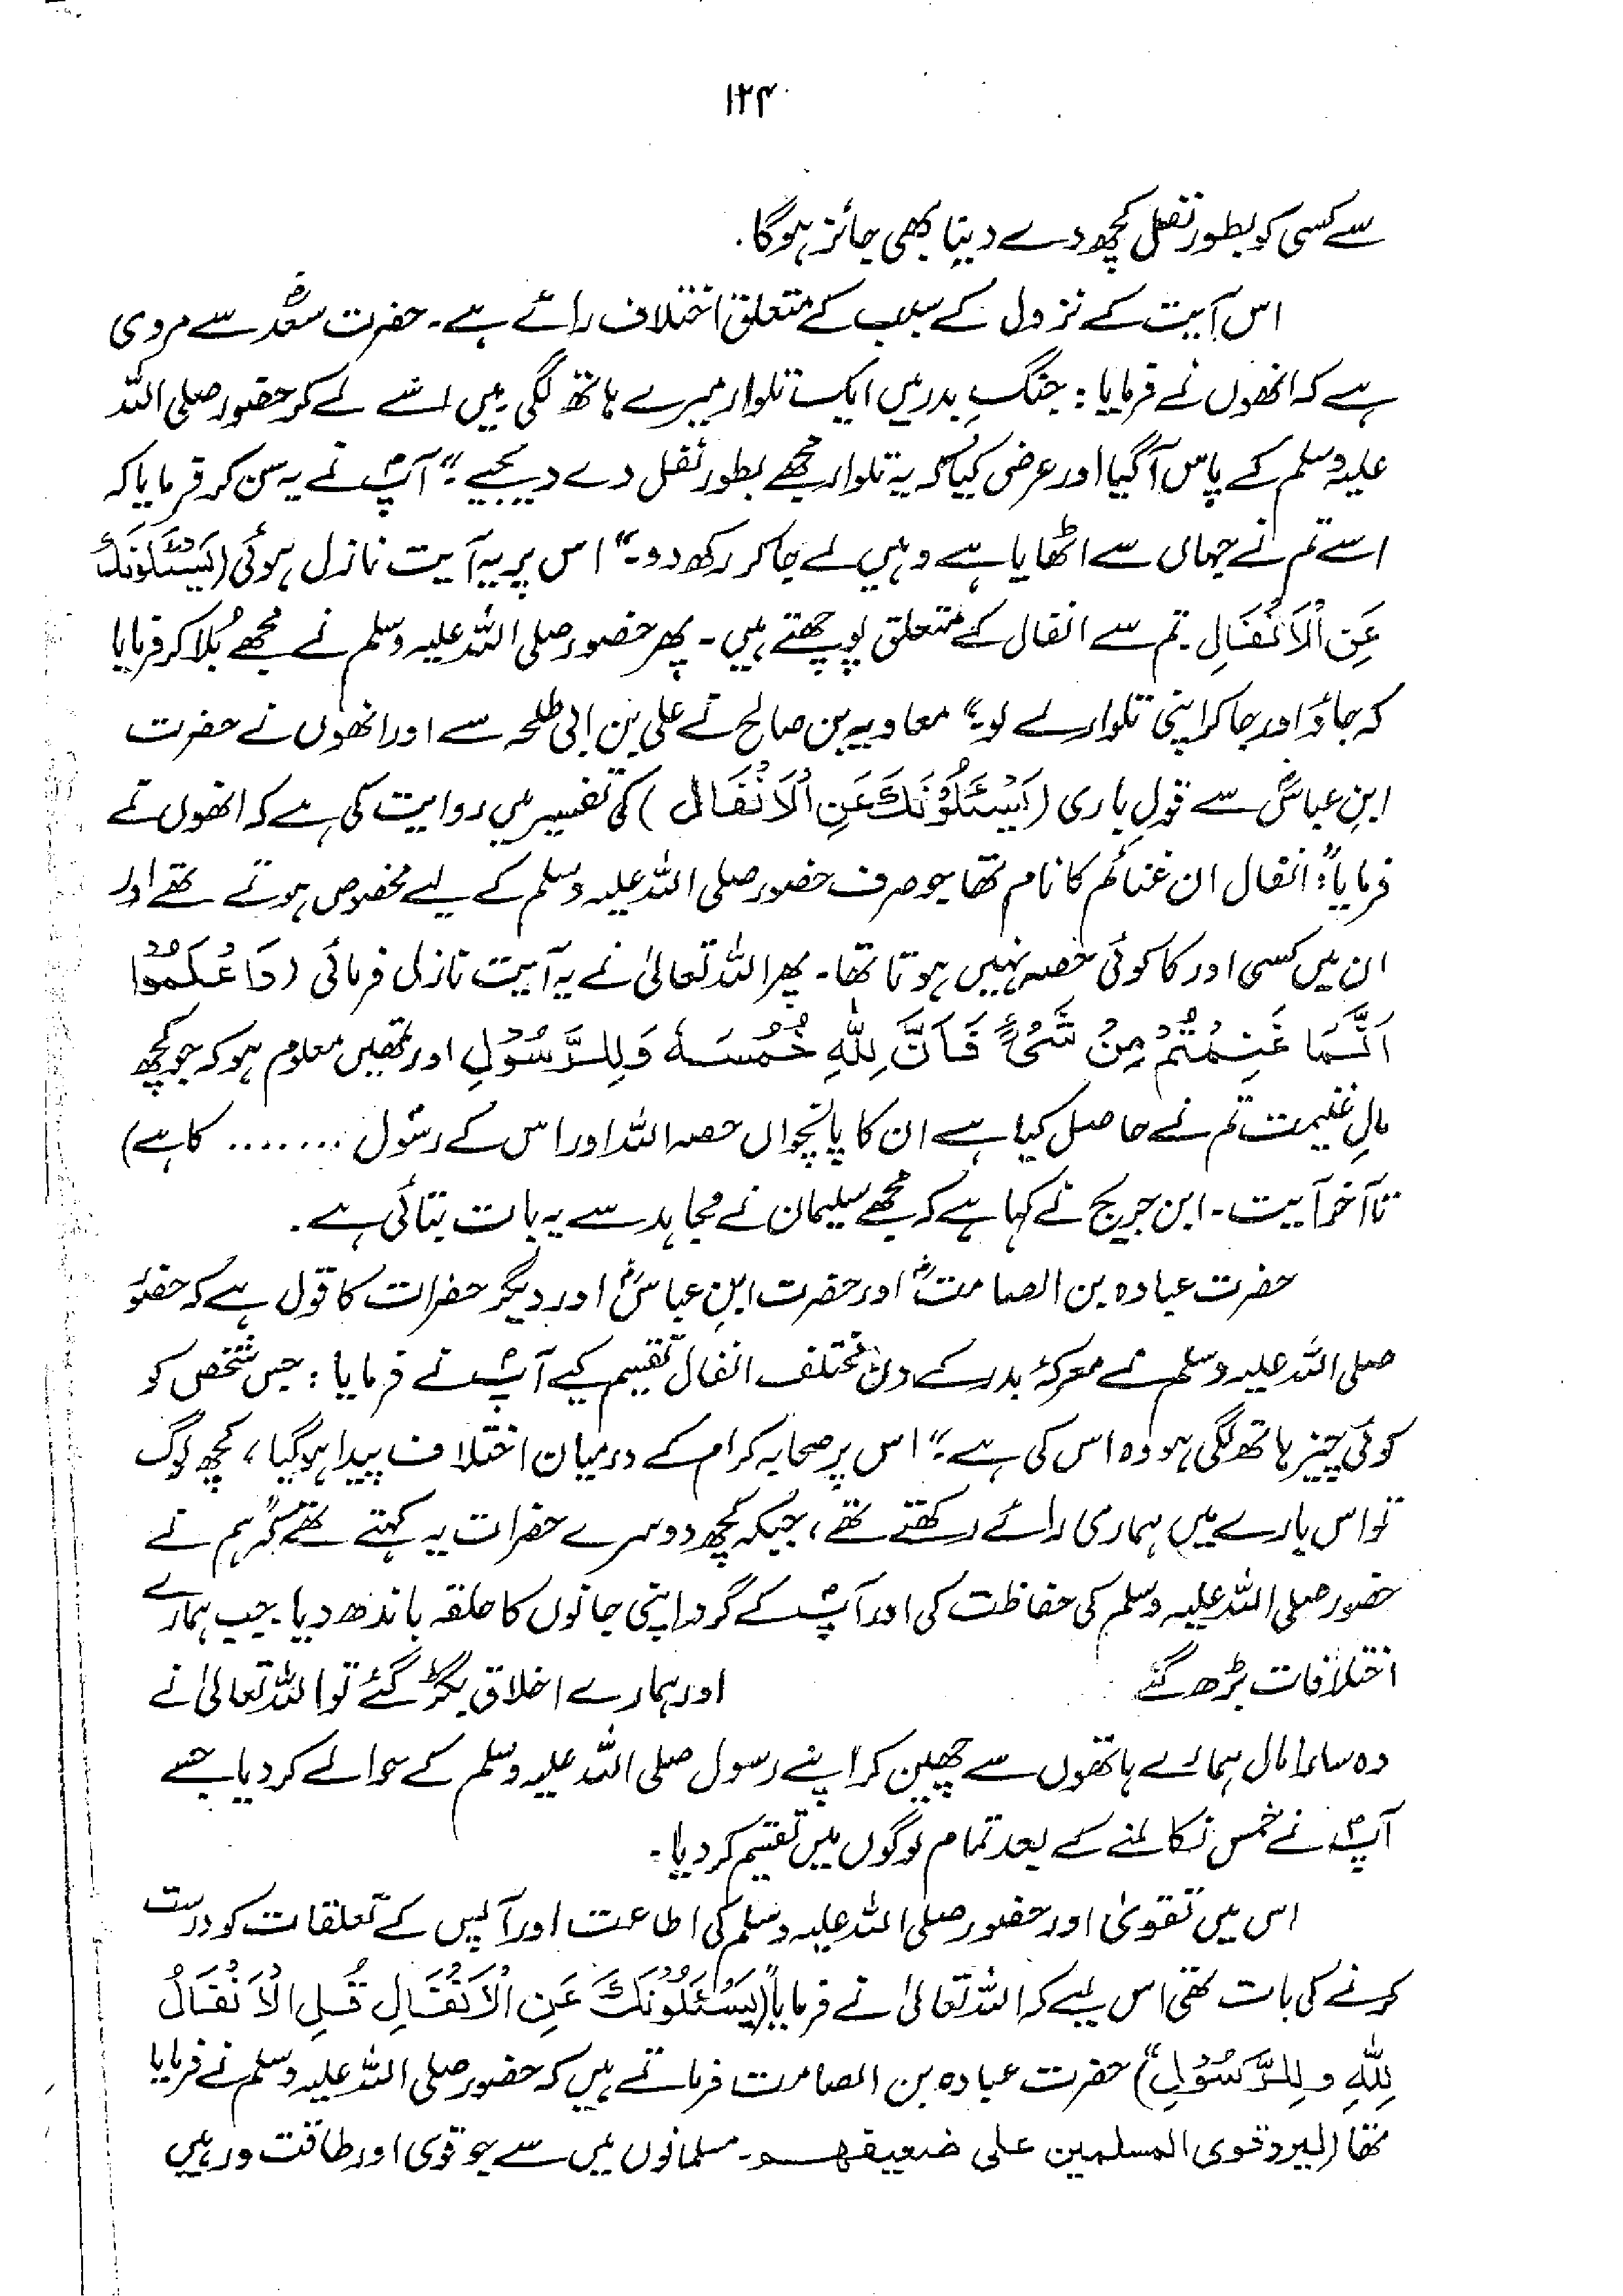 ۱۲۴
سے کسی کو بطور نفل کچھ دے دینا بھی جائز ہوگا۔
اس آیت کے نزول کے سبب کے متعلق اختلاف رائے ہے۔ حضرت سعدؓ سے مروی
ہے کہ انھوں نے فرمایا: جنگِ بدر میں ایک تلوار میرے ہاتھ لگی میں اسے لے کر حضور صلی اللہ
علیہ وسلم کے پاس آگیا اور عرض کیا کہ یہ تلوار مجھے بطور نفل دے دیجیے۔" آپؐ نے یہ سن کر فرمایا کہ
اسے تم نے جہاں سے اٹھایا ہے وہیں لے جا کر رکھ دو۔" اس پر یہ آیت نازل ہوئی (یَسْئَلُوْنَكَ
عَنِ الْاَنْفَالِ۔ تم سے انفال کے متعلق پوچھتے ہیں۔ پھر حضور صلی اللہ علیہ وسلم نے مجھے بُلا کر فرمایا
کہ جاؤ اور جا کر اپنی تلوار لے لو۔" معاویہ بن صالح نے علی بن ابی طلحہ سے اور انھوں نے حضرت
ابنِ عباسؓ سے قولِ باری (یَسْئَلُوْنَكَ عَنِ الْاَنْفَالِ) کی تفسیر میں روایت کی ہے کہ انھوں نے
فرمایا: "انفال ان غنائم کا نام تھا جو صرف حضور صلی اللہ علیہ وسلم کے لیے مخصوص ہوتے تھے اور
ان میں کسی اور کا کوئی حصہ نہیں ہوتا تھا۔ پھر اللہ تعالیٰ نے یہ آیت نازل فرمائی (وَاعْلَمُوْا
اَنَّمَا غَنِمْتُمْ مِنْ شَیْءٍ فَاَنَّ لِلّٰهِ خُمُسَهٗ وَلِلرَّسُوْلِ اور تمھیں معلوم ہو کہ جو کچھ
مالِ غنیمت تم نے حاصل کیا ہے ان کا پانچواں حصہ اللہ اور اس کے رسول ....... کا ہے)
تا آخر آیت۔ ابن جریج نے کہا ہے کہ مجھے سلیمان نے مجاہد سے یہ بات بتائی ہے۔
حضرت عبادہ بن الصامتؓ اور حضرت ابنِ عباسؓ اور دیگر حضرات کا قول ہے کہ حضور
صلی اللہ علیہ وسلم نے معرکۂ بدر کے دن مختلف انفال تقسیم کیے آپؐ نے فرمایا: جس شخص کو
کوئی چیز ہاتھ لگی ہو وہ اس کی ہے۔" اس پر صحابہ کرام کے درمیان اختلاف پیدا ہوگیا، کچھ لوگ
تو اس بارے میں ہماری رائے رکھتے تھے، جبکہ کچھ دوسرے حضرات یہ کہتے تھے کہ "ہم نے
حضور صلی اللہ علیہ وسلم کی حفاظت کی اور آپؐ کے گرد اپنی جانوں کا حلقہ باندھ دیا۔ جب ہمارے
اختلافات بڑھ گئے اور ہمارے اخلاق بگڑ گئے تو اللہ تعالیٰ نے
وہ سارا مال ہمارے ہاتھوں سے چھین کر اپنے رسول صلی اللہ علیہ وسلم کے حوالے کر دیا جسے
آپؐ نے خمس نکالنے کے بعد تمام لوگوں میں تقسیم کر دیا۔
اس میں تقویٰ اور حضور صلی اللہ علیہ وسلم کی اطاعت اور آپس کے تعلقات کو درست
کرنے کی بات تھی اس لیے کہ اللہ تعالیٰ نے فرمایا "(یَسْئَلُوْنَكَ عَنِ الْاَنْفَالِ قُلِ الْاَنْفَالُ
لِلّٰهِ وَلِلرَّسُوْلِ") حضرت عبادہ بن الصامت فرماتے ہیں کہ حضور صلی اللہ علیہ وسلم نے فرمایا
تھا (لیرد قوی المسلمین علی ضعیفهم۔ مسلمانوں میں سے جو قوی اور طاقت ور ہیں